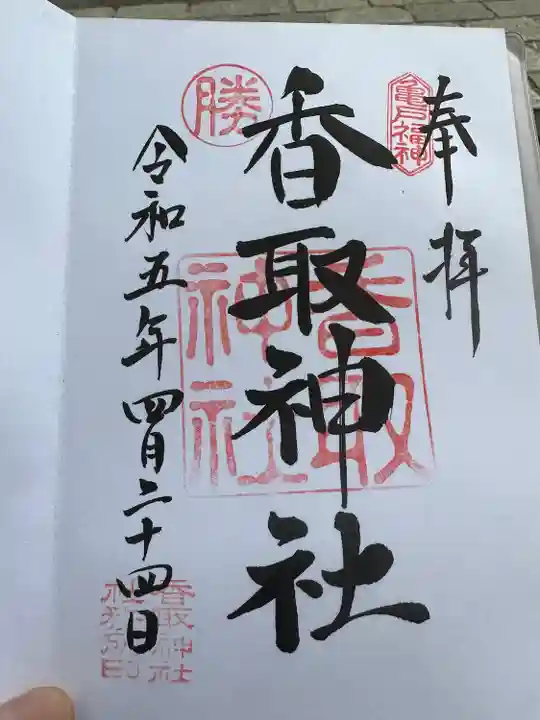 奉拝
亀戸福神
香取神社
香取神社
勝
令和五年四月二十四日
香取神社